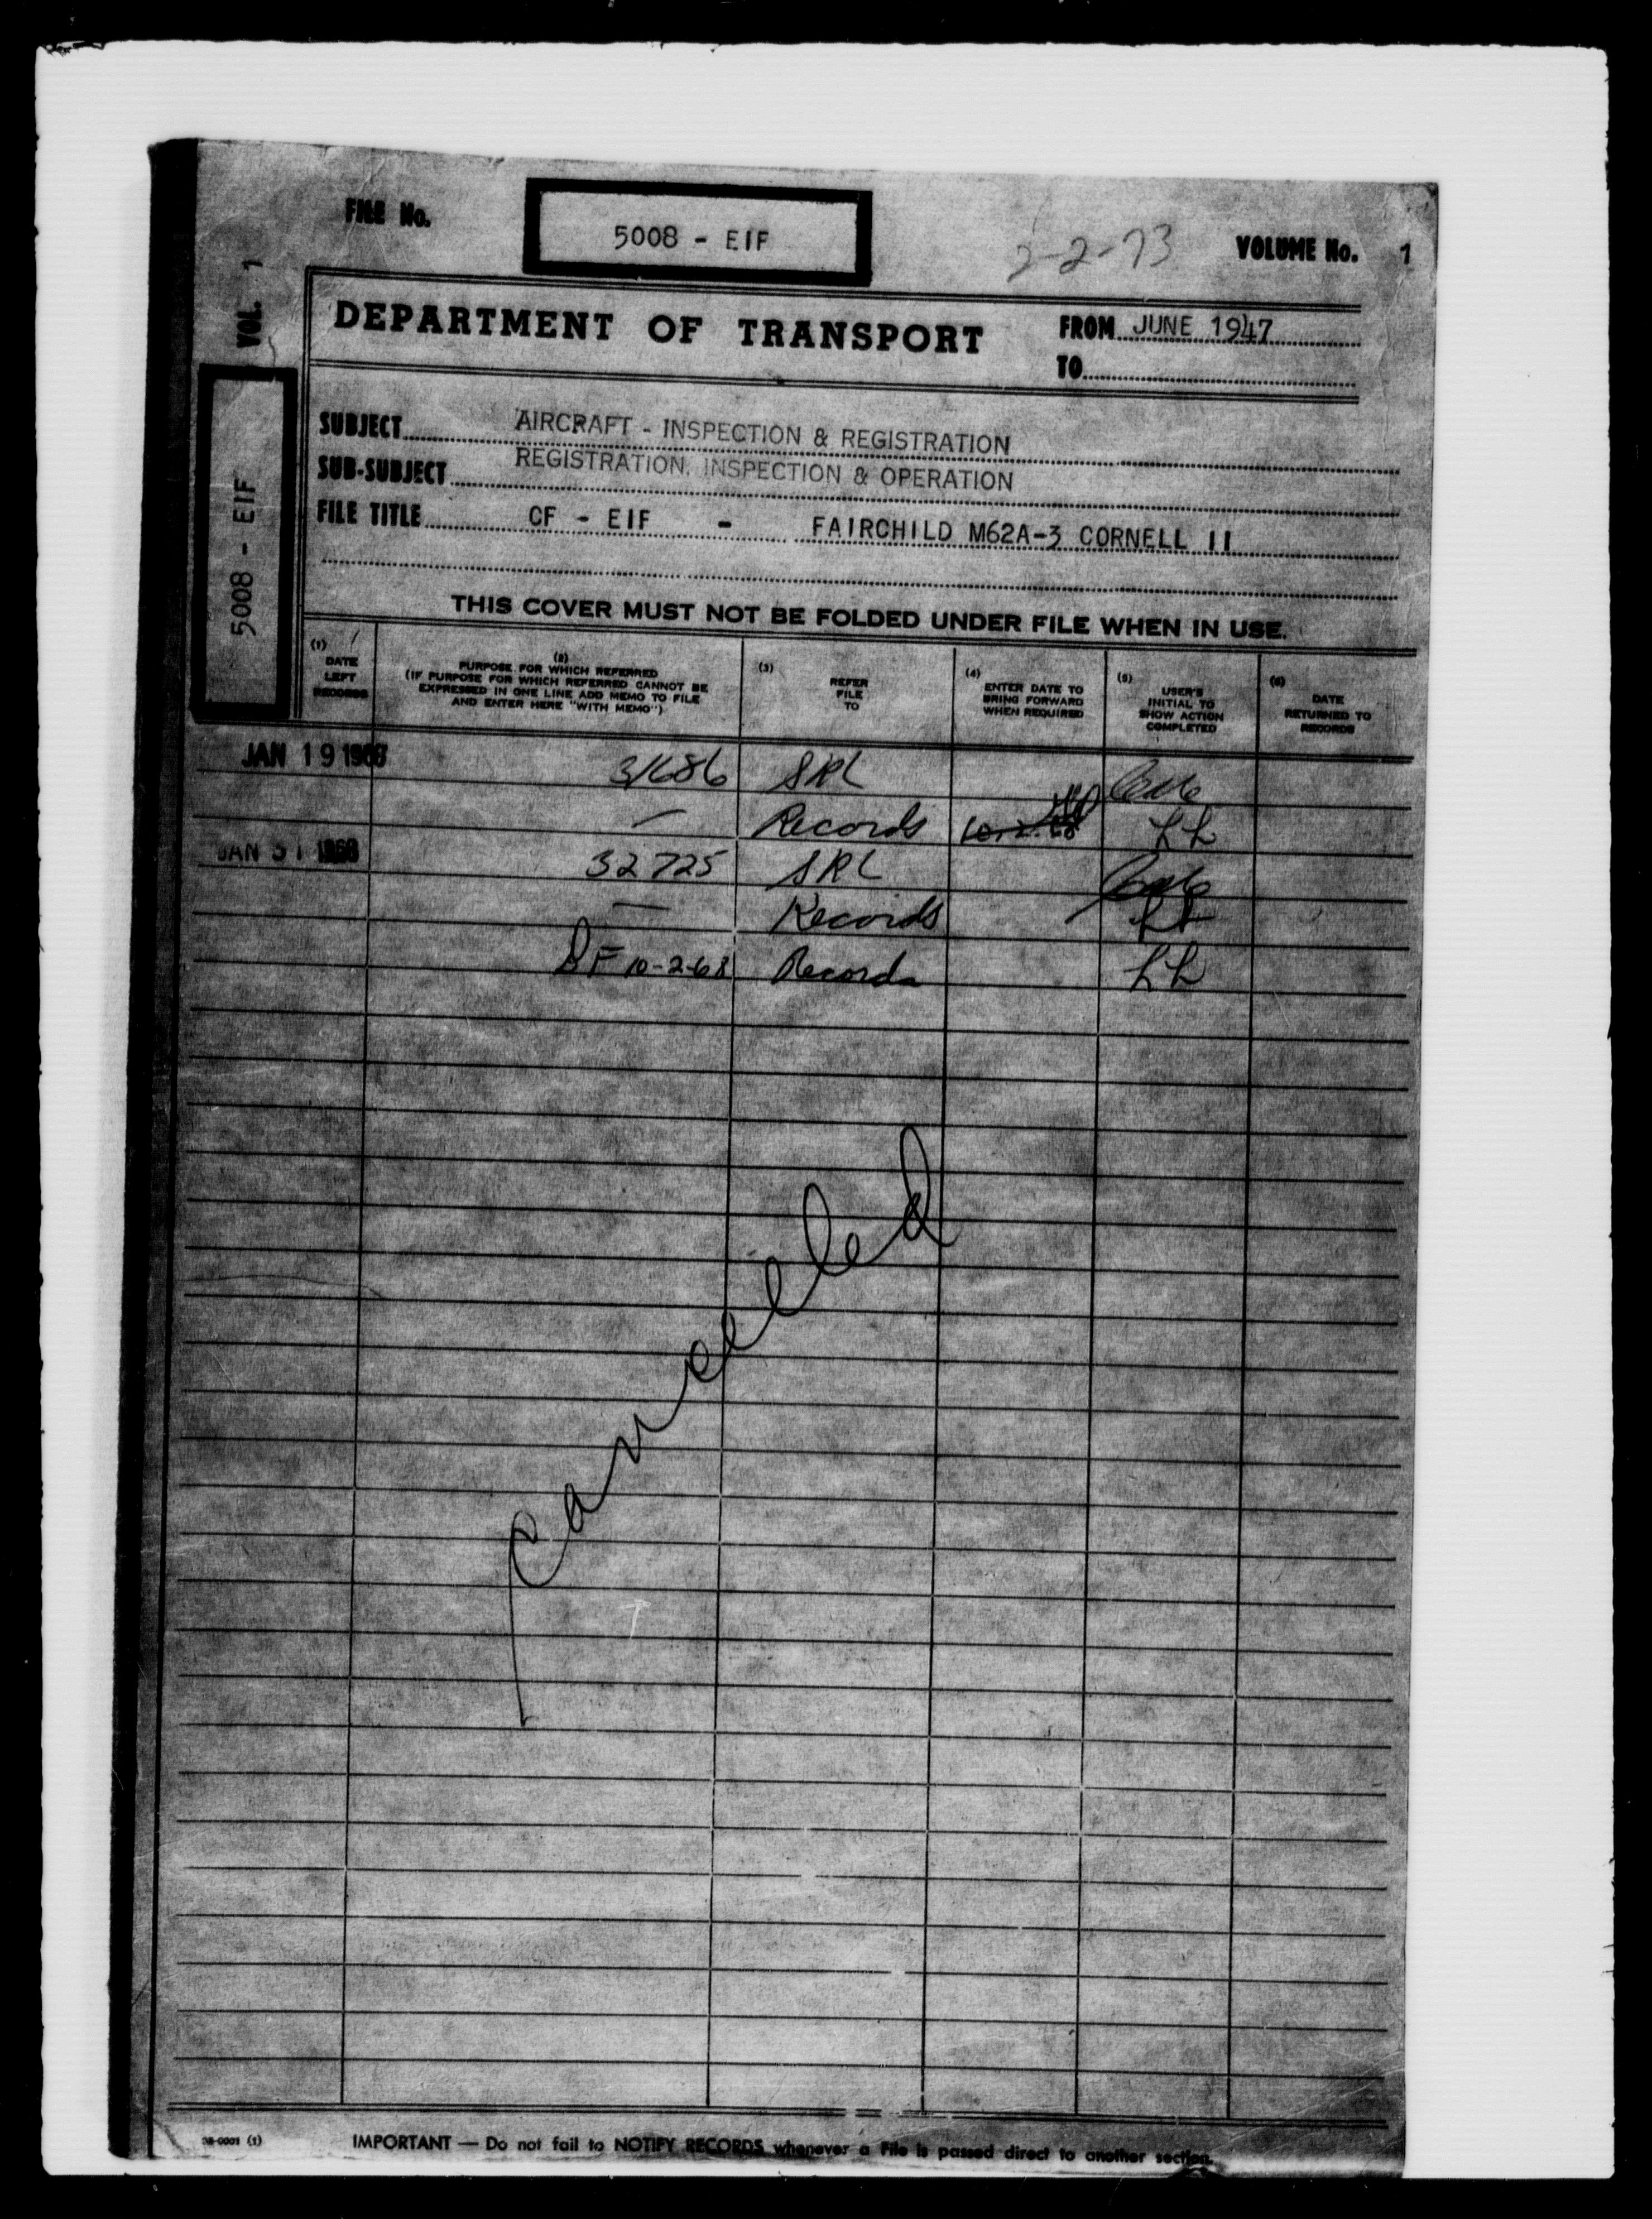 FILE No. 5008 - EIF 2-2-73 VOLUME No. 1
VOL. 1
5008 - EIF
DEPARTMENT OF TRANSPORT
FROM JUNE 1947
TO
SUBJECT AIRCRAFT - INSPECTION & REGISTRATION
SUB-SUBJECT REGISTRATION, INSPECTION & OPERATION
FILE TITLE CF - EIF - FAIRCHILD M62A-3 CORNELL II
THIS COVER MUST NOT BE FOLDED UNDER FILE WHEN IN USE.
(1) DATE LEFT RECORDS
(2) PURPOSE FOR WHICH REFERRED (IF PURPOSE FOR WHICH REFERRED CANNOT BE EXPRESSED IN ONE LINE ADD MEMO TO FILE AND ENTER HERE "WITH MEMO")
(3) REFER FILE TO
(4) ENTER DATE TO BRING FORWARD WHEN REQUIRED
(5) USER'S INITIAL TO SHOW ACTION COMPLETED
(6) DATE RETURNED TO RECORDS
JAN 19 1968 31686 SRL
— Records 10-2-68 LL
JAN 31 1968 32725 SRL
— Records LL
BF 10-2-68 Records LL
Cancelled
IMPORTANT — Do not fail to NOTIFY RECORDS whenever a File is passed direct to another section.